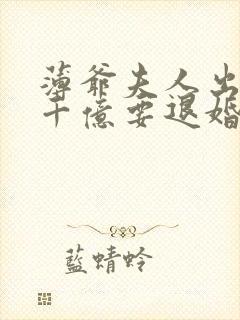 薄爺夫人出
十億要退婚
藍蜻蛉